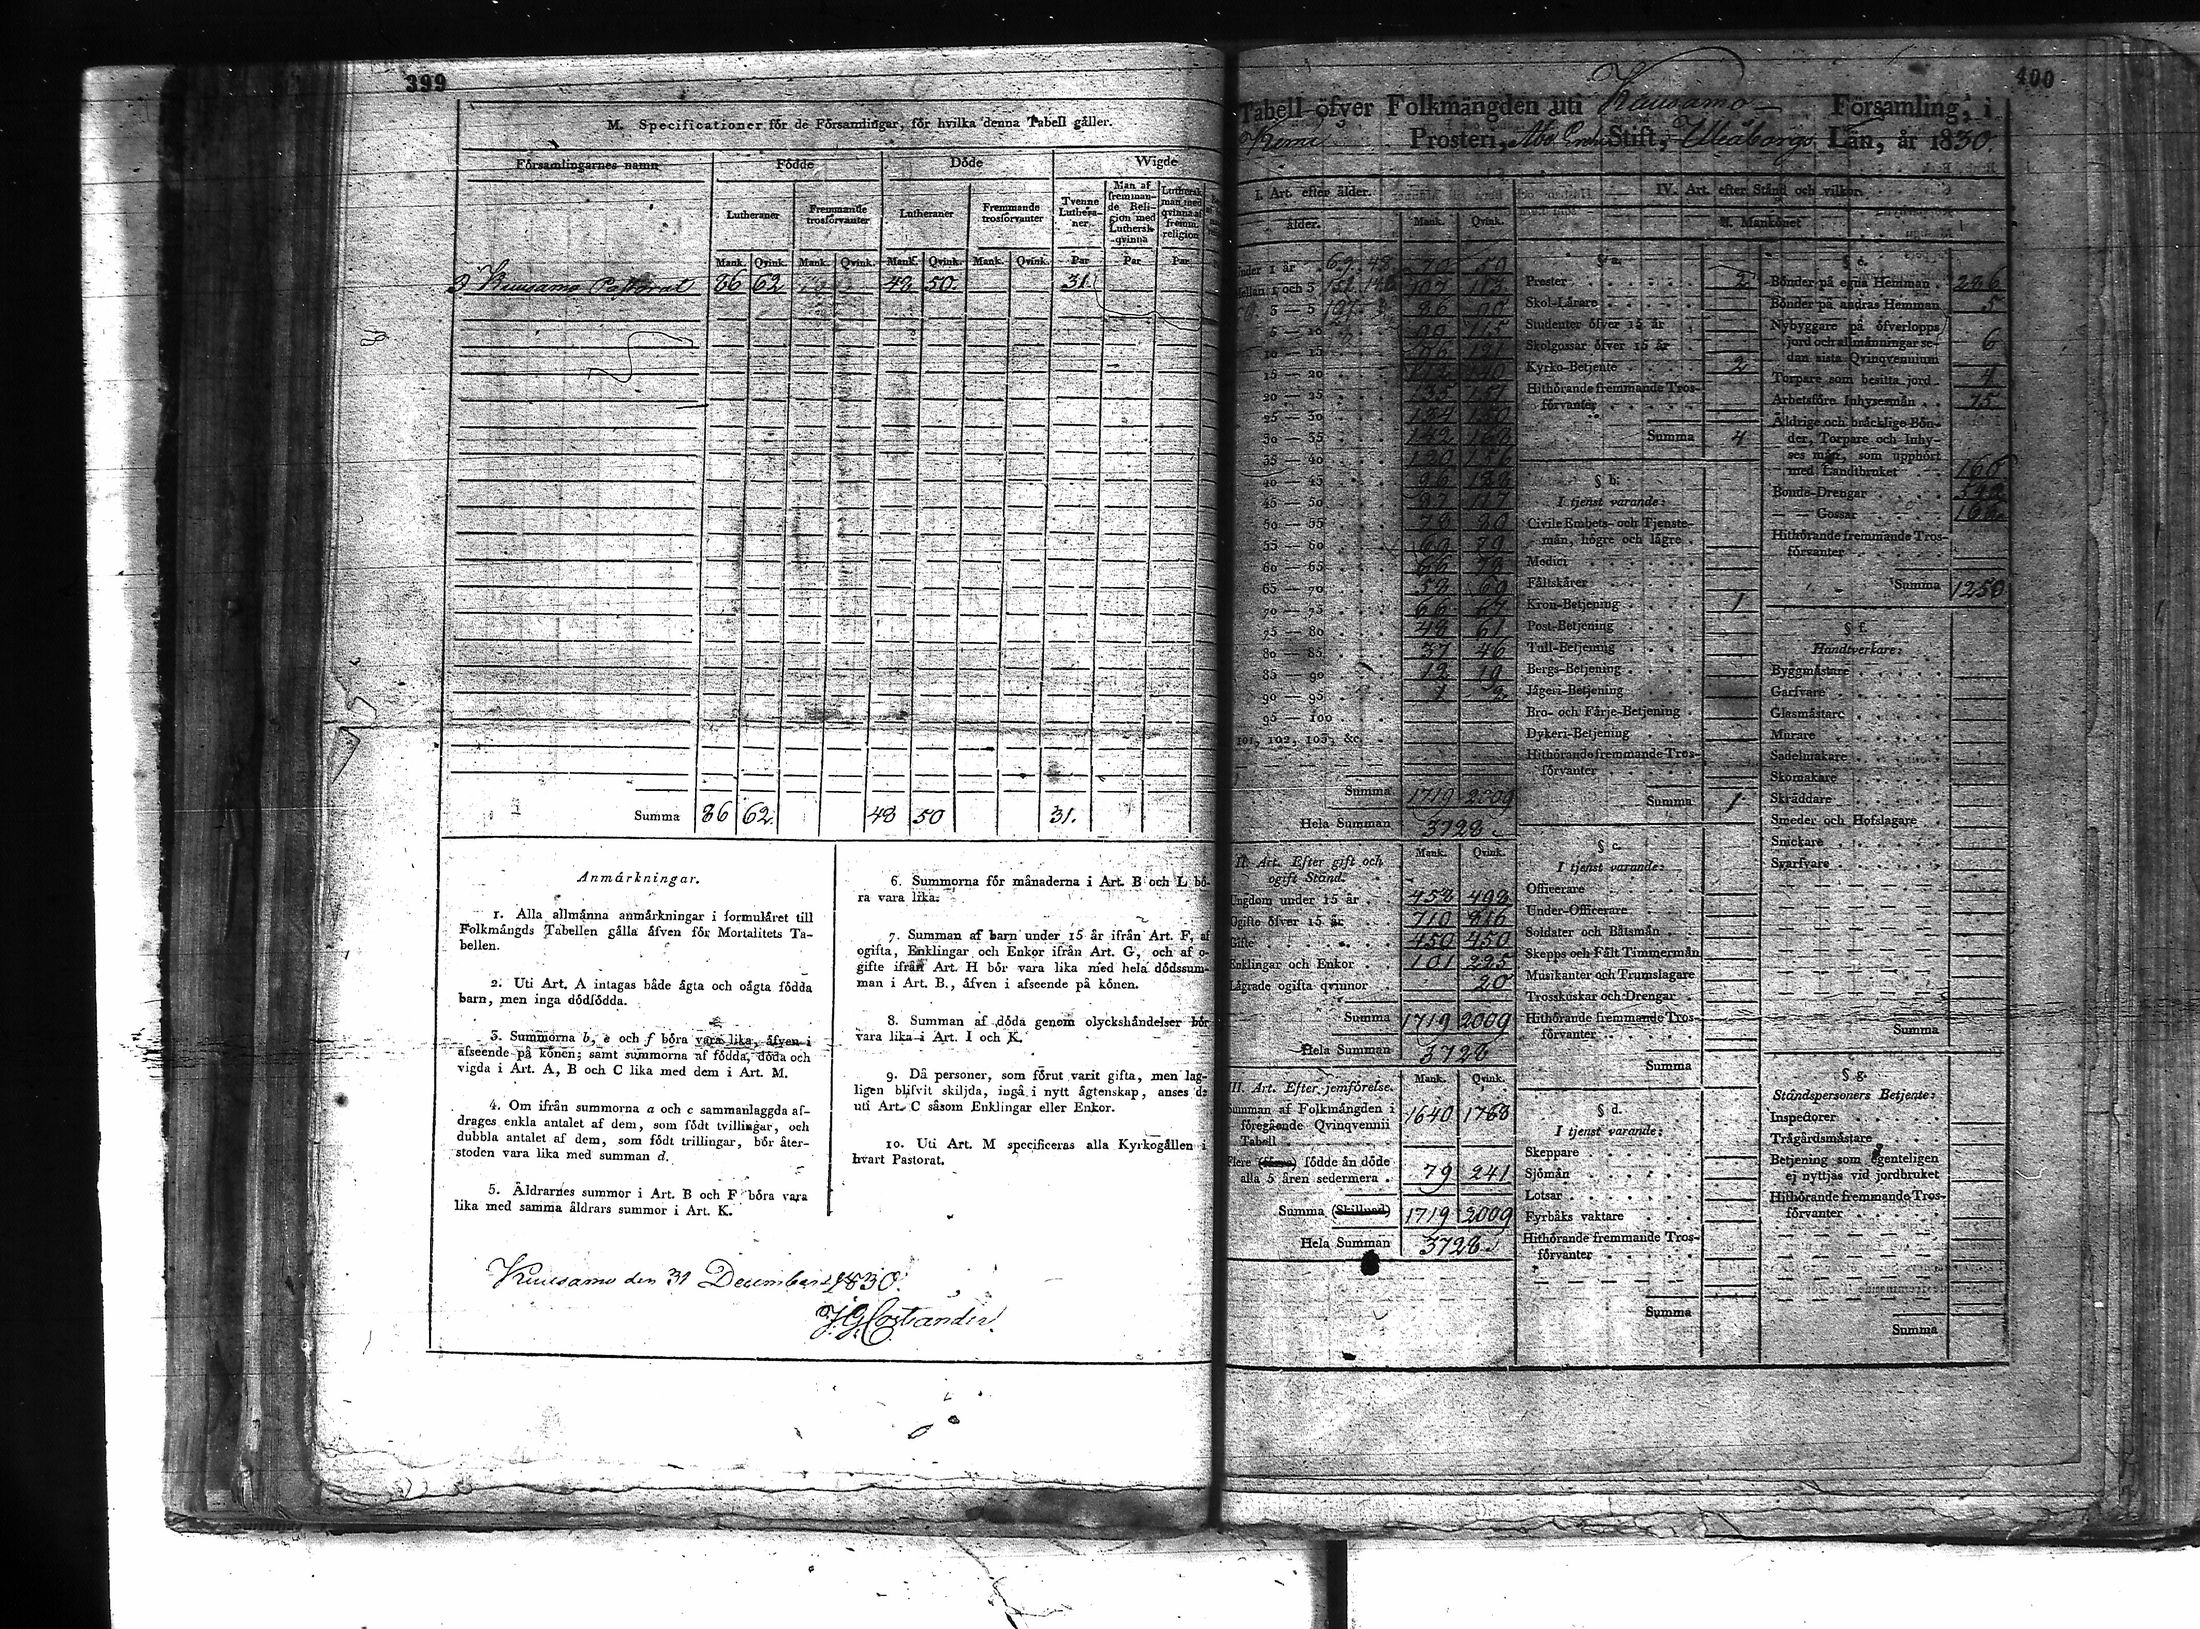 399
M. Specificationer för de Församlingar, för hvilka denna Tabell gäller.
Församlingarnes namn
Födde
Döde
Wigde
Lutheraner
Fremmande trosförvanter
Lutheraner
Fremmande trosförvanter
Tvenne Luthera-ner.
Man af fremman-de Reli-gion med Luthersk qvinna
Luthersk man med qvinna af fremm. religion
Mank. Qvink. Mank. Qvink. Mank. Qvink. Mank. Qvink. Par Par Par
Kuusamo Pastorat 86 62 48 50. 31.
Summa 86 62. 48 50 31.
Anmärkningar.
1. Alla allmänna anmärkningar i formuläret till
Folkmängds Tabellen gälla äfven för Mortalitets Ta-
bellen.
2. Uti Art. A intagas både ägta och oägta födda
barn, men inga dödfödda.
3. Summorna b, e och f böra vara lika, äfven i
afseende på könen; samt summorna af födda, döda och
vigda i Art. A, B och C lika med dem i Art. M.
4. Om ifrån summorna a och c sammanlaggda af-
drages enkla antalet af dem, som födt tvillingar, och
dubbla antalet af dem, som födt trillingar, bör åter-
stoden vara lika med summan d.
5. Äldrarnes summor i Art. B och F böra vara
lika med samma åldrars summor i Art. K.
6. Summorna för månaderna i Art. B och L bö-
ra vara lika.
7. Summan af barn under 15 år ifrån Art. F, af
ogifta, Enklingar och Enkor ifrån Art. G, och af o-
gifte ifrån Art. H bör vara lika med hela dödssum-
man i Art. B., äfven i afseende på könen.
8. Summan af döda genom olyckshändelser bör
vara lika i Art. I och K.
9. Då personer, som förut varit gifta, men lag-
ligen blifvit skiljda, ingå i nytt ägtenskap, anses de
uti Art. C såsom Enklingar eller Enkor.
10. Uti Art. M specificeras alla Kyrkogällen i
hvart Pastorat.
Kuusamo den 31 December 1830.
400
Tabell öfver Folkmängden uti Kuusamo Församling, i
Kemi Prosteri, Åbo Erke Stift, Uleåborgs Län, år 1830.
I. Art. efter ålder.
Ålder. Mank. Qvink.
Under 1 år 70 50
Mellan 1 och 5 107 113
5 — 10
10 — 15
15 — 20
20 — 25 135
25 — 30
30 — 35 142 168
35 — 40 120 156
40 — 45
45 — 50 87 117
50 — 55 78 80
55 — 60
60 — 65
65 — 70
70 — 75 66 67
75 — 80 48 61
80 — 85 37 46
85 — 90 12 19
90 — 95 1 2
95 — 100
101, 102, 103, &c.
Summa 1719 2009
Hela Summan 3728
II. Art. Efter gift och ogift Stånd. Mank. Qvink.
Ungdom under 15 år 458 498
Ogifte öfver 15 år 710 816
Gifte 450 450
Enklingar och Enkor 101 225
Lägrade ogifta qvinnor 20
Summa 1719 2009
Hela Summan 3728
III. Art. Efter jemförelse. Mank. Qvink.
Summan af Folkmängden i
föregående Qvinqvennii
Tabell 1640 1768
Flere (färre) födde än döde
alla 5 åren sedermera 79 241
Summa (Skillnad) 1719 2009
Hela Summan 3728
IV. Art. efter Stånd och vilkor.
Mankönet
§ a.
Prester 2
Skol-Lärare
Studenter öfver 15 år
Skolgossar öfver 15 år
Kyrko-Betjente 2
Hithörande fremmande Tros-
förvanter
Summa 4
§ b.
I tjenst varande:
Civile Embets- och Tjenste-
män, högre och lägre
Medici
Fältskärer
Kron-Betjening 1
Post-Betjening
Tull-Betjening
Bergs-Betjening
Jägeri-Betjening
Bro- och Färje-Betjening
Dykeri-Betjening
Hithörande fremmande Tros-
förvanter
Summa 1
§ c.
I tjenst varande:
Officerare
Under-Officerare
Soldater och Båtsmän
Skepps och Fält Timmermän
Musikanter och Trumslagare
Trosskuskar och Drengar
Hithörande fremmande Tros-
förvanter
Summa
§ d.
I tjenst varande:
Skeppare
Sjömän
Lotsar
Fyrbåks vaktare
Hithörande fremmande Tros-
förvanter
Summa
§ e.
Bönder på egna Hemman 286
Bönder på andras Hemman 5
Nybyggare på öfverlopps
jord och allmänningar se-
dan sista Qvinqvennium 6
Torpare som besitta jord 4
Arbetsföre Inhysesmän 75
Äldrige och bräcklige Bön-
der, Torpare och Inhy-
ses män, som upphört
med Landtbruket
Bonde-Drengar
— — Gossar
Hithörande fremmande Tros-
förvanter
Summa 1250
§ f.
Handtverkare:
Byggmästare
Garfvare
Glasmästare
Murare
Sadelmakare
Skomakare
Skräddare
Smeder och Hofslagare
Snickare
Svarfvare
Summa
§ g.
Ståndspersoners Betjente:
Inspectorer
Trägårdsmästare
Betjening som egenteligen
ej nyttjas vid jordbruket
Hithörande fremmande Tros-
förvanter
Summa